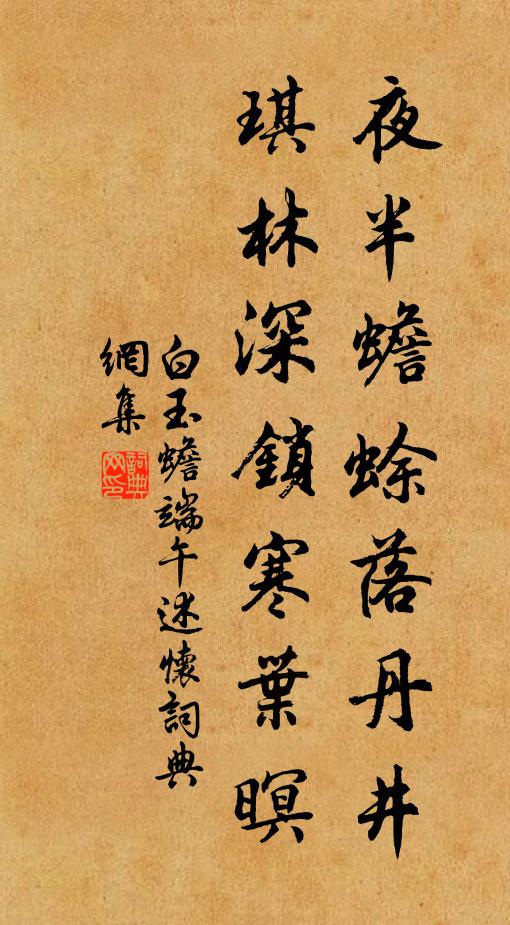 夜半蟾蜍落丹井
琪林深鎖寒葉暝
白玉蟾端午述懷詞典
網集
詞典網印